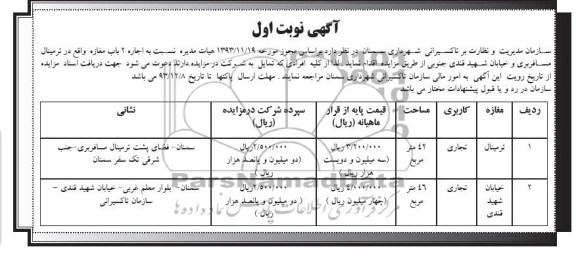 آگهی نوبت اول
سازمان مدیریت و نظارت بر تاکسیرانی شهرداری سمنان در نظر دارد براساس مجوز مورخه ۱۳۹۳/۱۱/۱۹ هیات مدیره نسبت به اجاره ۲ باب مغازه واقع در ترمینال
مسافربری و خیابان شهید قندی جنوبی از طریق مزایده اقدام نماید لذا از کلیه افرادی که تمایل به شرکت در مزایده دارند دعوت می شود جهت دریافت اسناد مزایده
از تاریخ رویت این آگهی به امور مالی سازمان تاکسیرانی شهرداری سمنان مراجعه نمایند . مهلت ارسال پاکتها تا تاریخ ۹۳/۱۲/۸ می باشد
سازمان در رد و یا قبول پیشنهادات مختار می باشد
ردیف مغازه کاربری مساحت قیمت پایه از قرار ماهیانه (ریال) سپرده شرکت درمزایده (ریال) نشانی
۱ ترمینال تجاری ۴۲ متر مربع ۳/۲۰۰/۰۰۰ ریال (سه میلیون و دویست هزار ریال) ۲/۵۰۰/۰۰۰ ریال (دو میلیون و پانصد هزار ریال) سمنان- فضای پشت ترمینال مسافربری-جنب شرقی تک سفر سمنان
۲ خیابان شهید قندی تجاری ۴۶ متر مربع ۴/۰۰۰/۰۰۰ ریال (چهار میلیون ریال) ۲/۵۰۰/۰۰۰ ریال (دو میلیون و پانصد هزار ریال) سمنان - بلوار معلم غربی- خیابان شهید قندی - سازمان تاکسیرانی
ParsNamadData